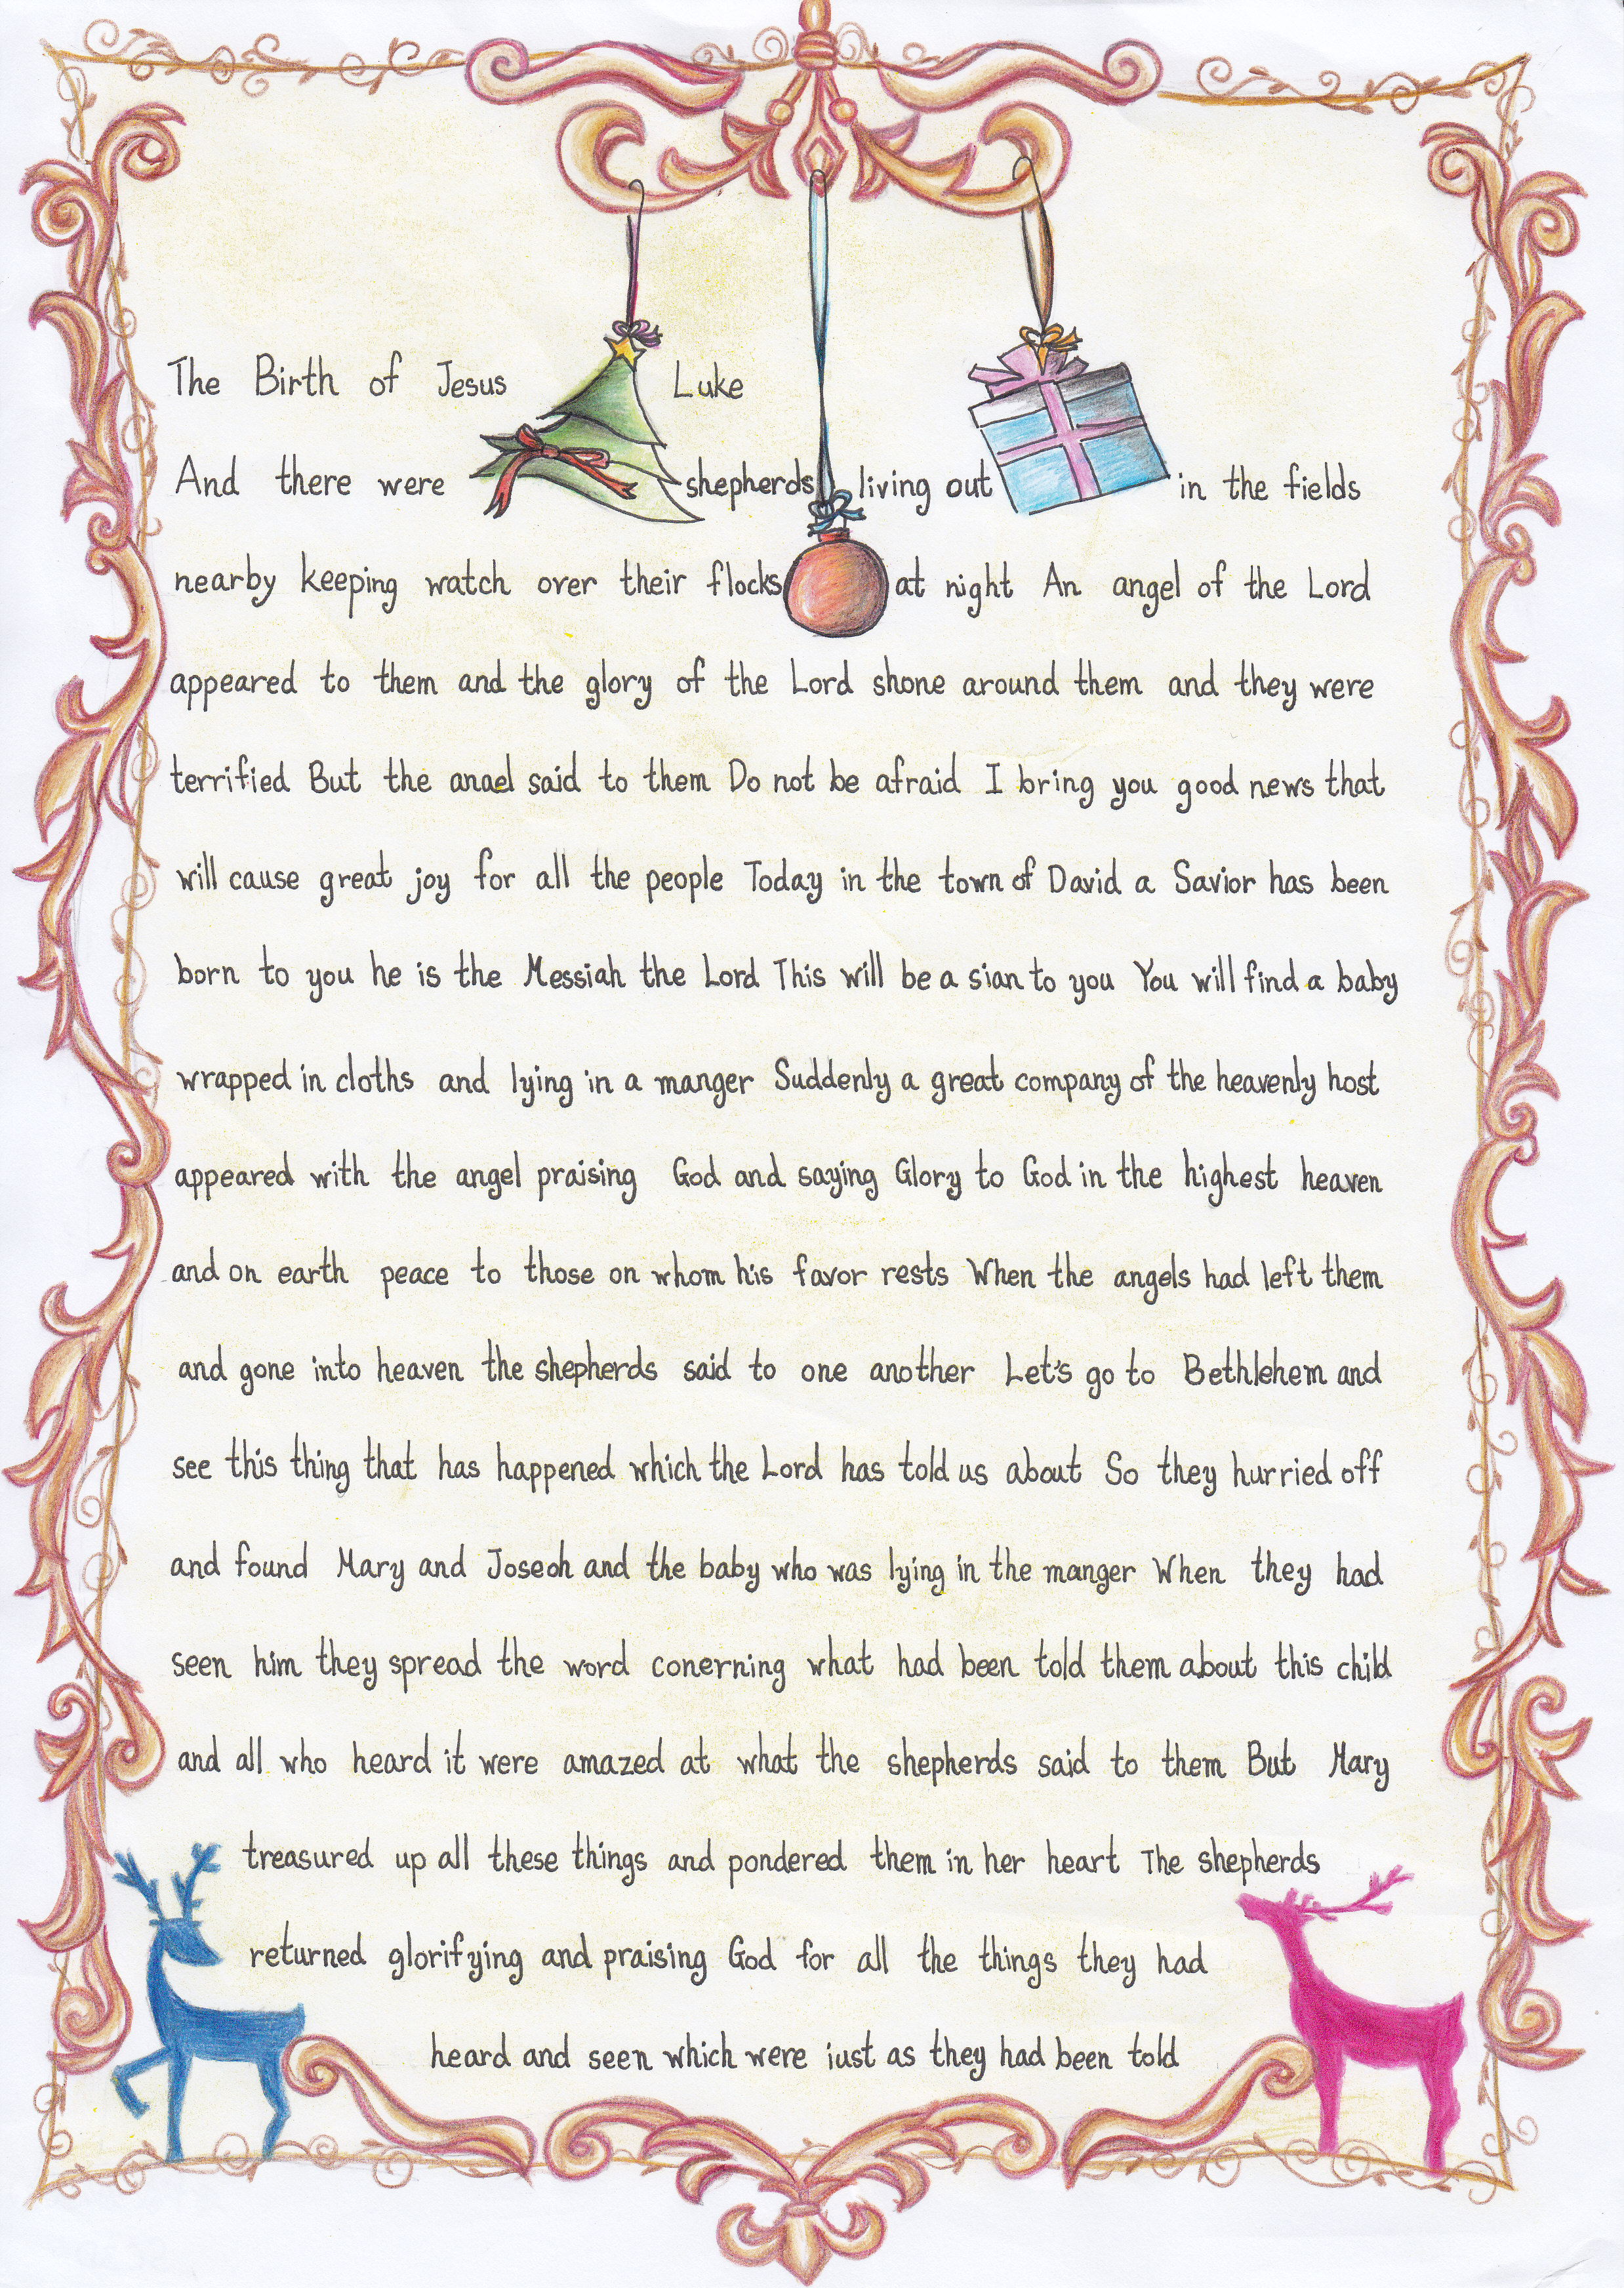 The Birth of Jesus Luke
And there were shepherds living out in the fields
nearby keeping watch over their flocks at night An angel of the Lord
appeared to them and the glory of the Lord shone around them and they were
terrified But the anael said to them Do not be afraid I bring you good news that
will cause great joy for all the people Today in the town of David a Savior has been
born to you he is the Messiah the Lord This will be a sian to you You will find a baby
wrapped in cloths and lying in a manger Suddenly a great company of the heavenly host
appeared with the angel praising God and saying Glory to God in the highest heaven
and on earth peace to those on whom his favor rests When the angels had left them
and gone into heaven the shepherds said to one another Let's go to Bethlehem and
see this thing that has happened which the Lord has told us about So they hurried off
and found Mary and Joseoh and the baby who was lying in the manger When they had
seen him they spread the word conerning what had been told them about this child
and all who heard it were amazed at what the shepherds said to them But Mary
treasured up all these things and pondered them in her heart The shepherds
returned glorifying and praising God for all the things they had
heard and seen which were iust as they had been told